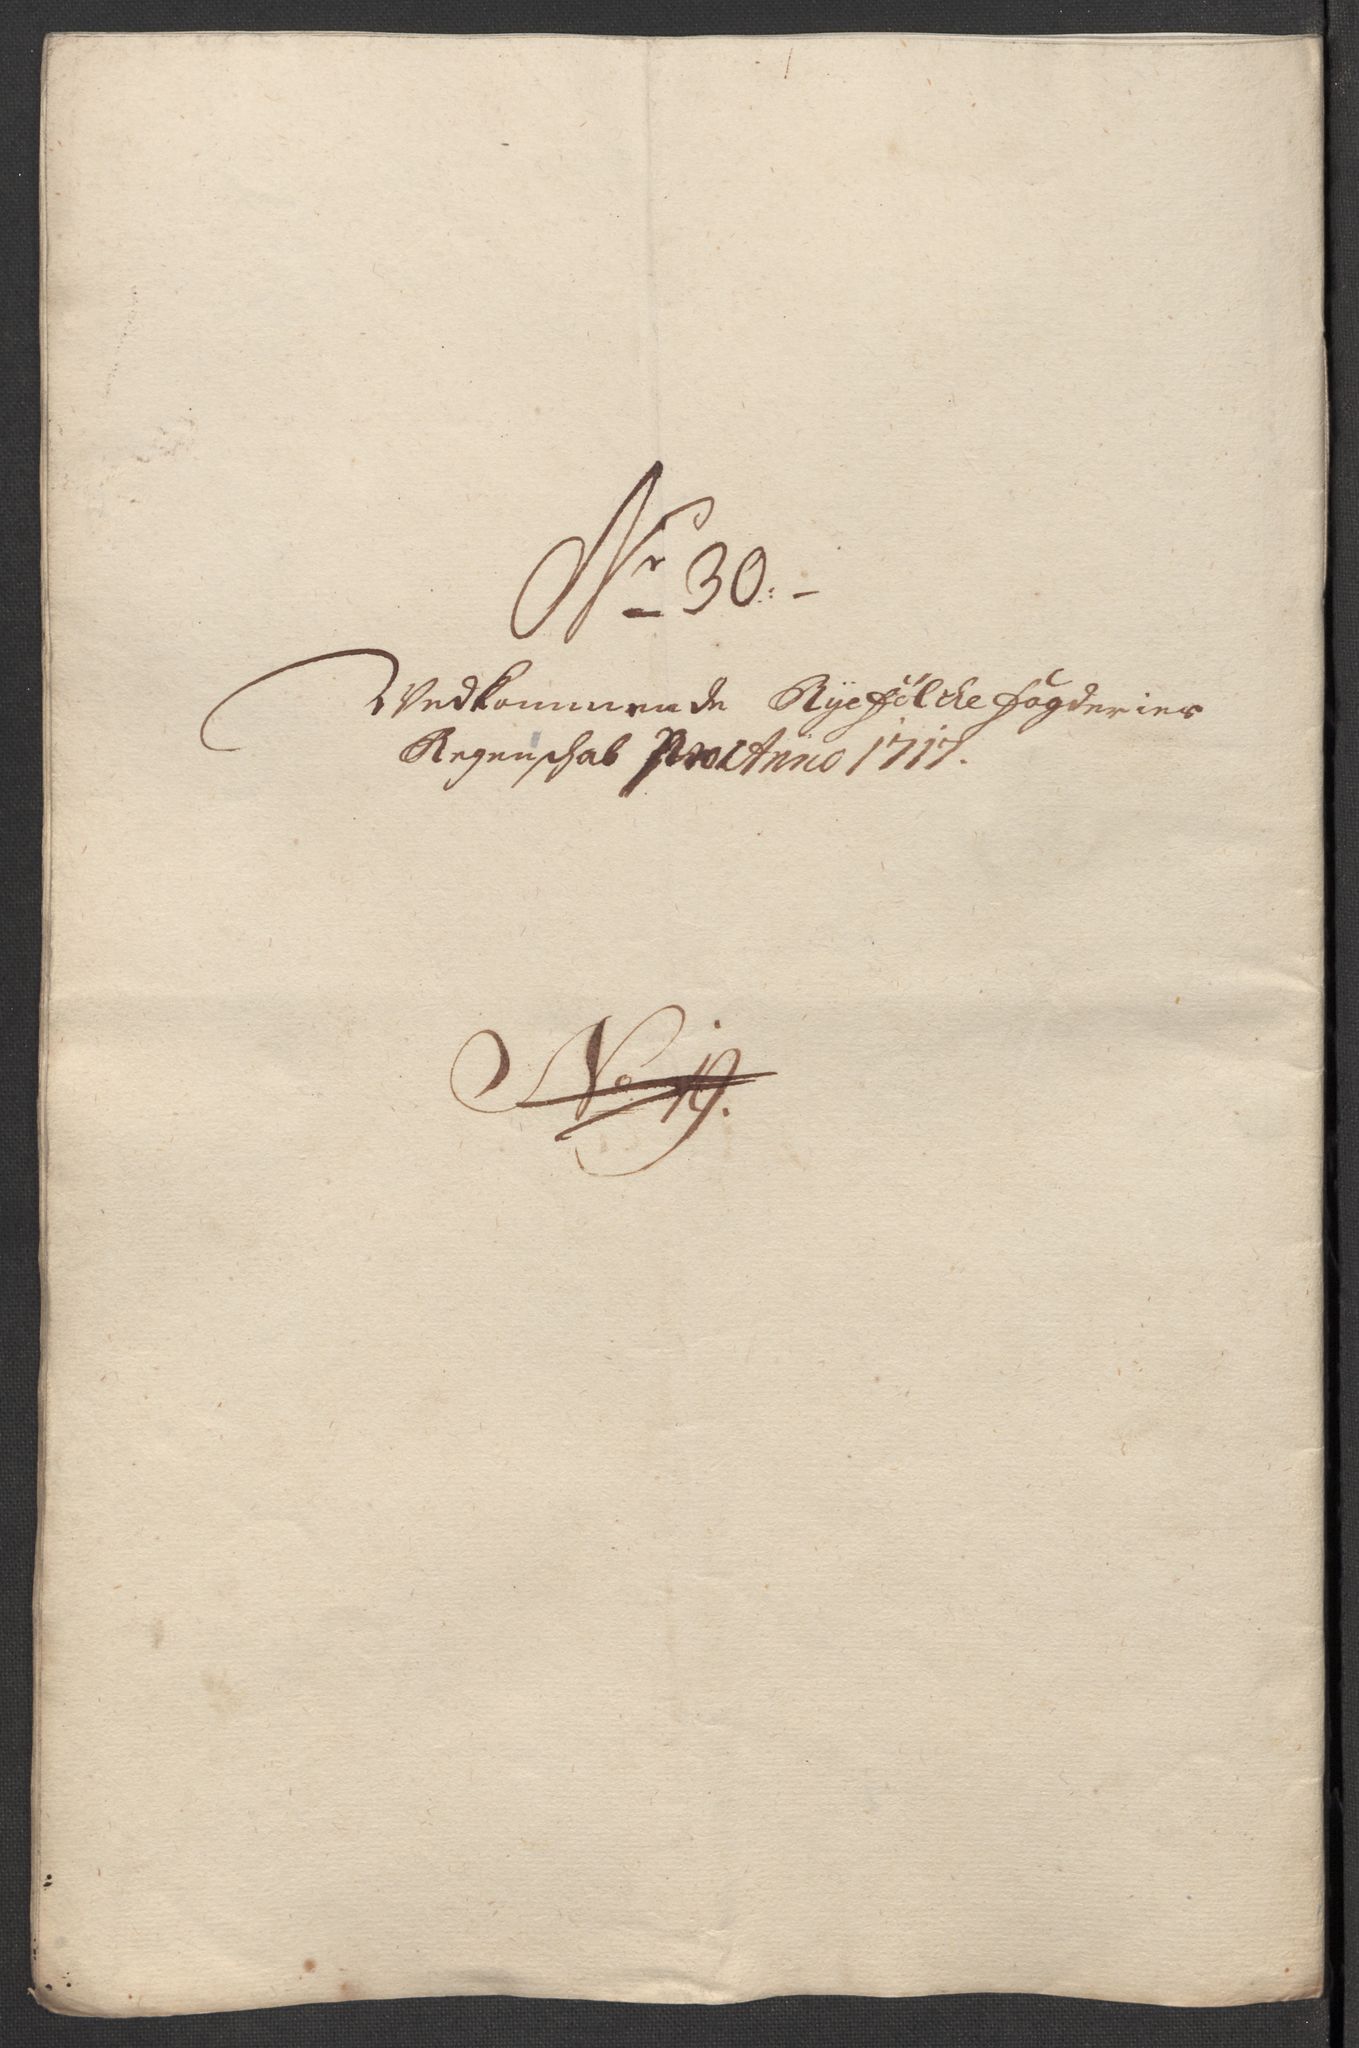 Nr 30. -
Vedkommende Ryefÿlcke fogderies
Regenschab Pro Anno 1717.
No 19.